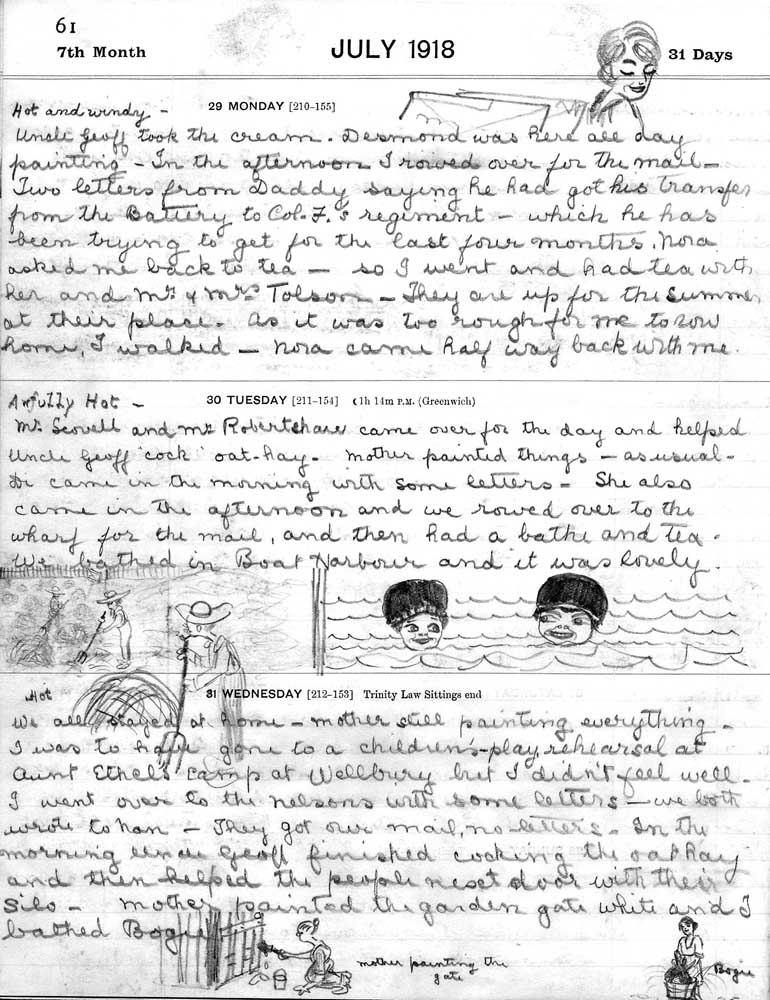 61
7th Month JULY 1918 31 Days
Hot and windy - 29 MONDAY [210-155]
Uncle Geoff took the cream. Desmond was here all day
painting - In the afternoon I rowed over for the mail -
Two letters from Daddy saying he had got his transfer
from the Battery to Col. F.'s regiment - which he has
been trying to get for the last four months. Nora
asked me back to tea - so I went and had tea with
her and Mr. & Mrs. Tolson - They are up for the summer
at their place. As it was too rough for me to row
home, I walked - Nora came half way back with me.
Awfully Hot - 30 TUESDAY [211-154] ☾1h 14m P.M. (Greenwich)
Mr. Scovell and Mr. Robertshaw came over for the day and helped
Uncle Geoff 'cock' oat-hay. Mother painted things - as usual -
Di came in the morning with some letters - She also
came in the afternoon and we rowed over to the
wharf for the mail, and then had a bathe and tea.
We bathed in Boat Harbour and it was lovely.
Hot 31 WEDNESDAY [212-153] Trinity Law Sittings end
We all stayed at home - mother still painting everything -
I was to have gone to a children's-play rehearsal at
Aunt Ethel's camp at Wellbury but I didn't feel well -
I went over to the Nelsons with some letters - we both
wrote to Nan - They got our mail, no letters. In the
morning Uncle Geoff finished cocking the oat hay
and then helped the people next door with their
silo - Mother painted the garden gate white and I
bathed Bogie
mother painting the
gate
Bogie